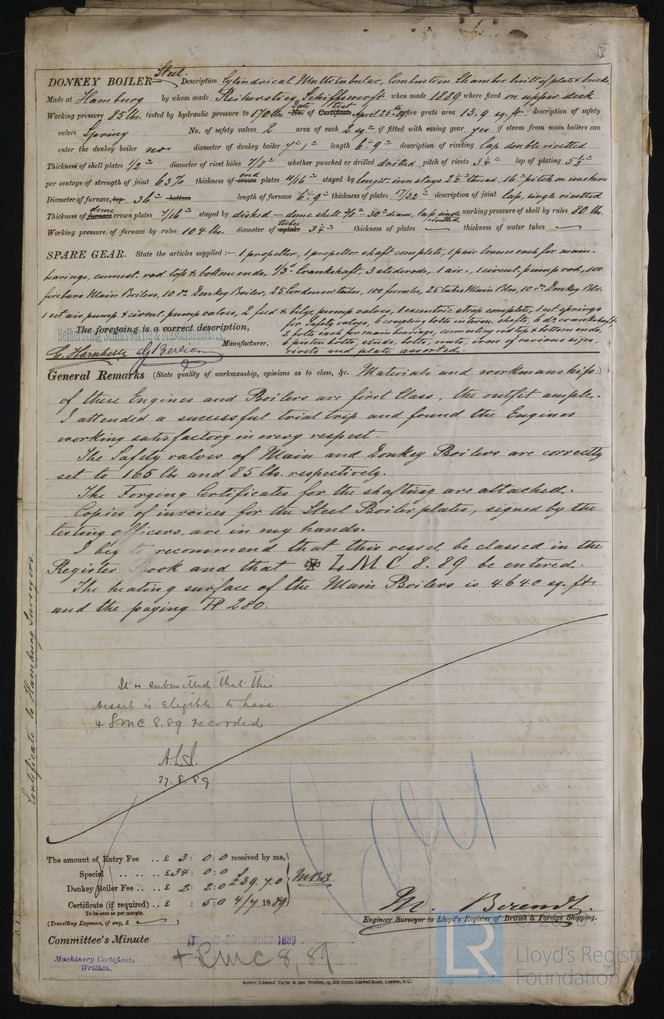 DONKEY BOILER Steel. Description Cylindrical Multitubular, Combustion Chamber built of plate & bricks,
Made at Hamburg by whom made Reiherstieg Schiffswerft when made 1889 where fixed on upper deck
Working pressure 85 lbs. tested by hydraulic pressure to 170 lbs Date of Test April 25th fire grate area 13.9 sq. ft description of safety
valves Spring No. of safety valves 2 area of each if fitted with easing gear yes if steam from main boilers can
enter the donkey boiler no diameter of donkey boiler length 6'-9" description of riveting Lap double riveted
Thickness of shell plates 1/2" diameter of rivet holes 7/8" whether punched or drilled drilled pitch of rivets lap of plating
per centage of strength of joint 63% thickness of end plates 11/16" stayed by longit. iron stays
Diameter of furnace, top 36" bottom length of furnace 6'-9" thickness of plates 17/32" description of joint Lap, single riveted
Thickness of dome crown plates 7/16" stayed by dished - dome shell 30" diam, lap single riveted working pressure of shell by rules 80 lb.
Working pressure of furnace by rules 104 lb. diameter of tubes thickness of plates thickness of water tubes
SPARE GEAR. State the articles supplied:- 1 propeller, 1 propeller shaft complete, 1 pair brasses each for main
bearings, connect. rod top & bottom ends, 1/3rd Crankshaft, 3 slide rods, 1 air, 1 circul. pump rod, 100
fire bars Main Boilers, 10 do. Donkey Boiler, 25 Condenser tubes, 100 ferrules, 25 tubes Main Blrs, 10 do. Donkey Blr.
1 set air pump & circul. pump valves, 2 feed & bilge pump valves, 1 excentric strap complete, 1 set springs
for safety valves, 6 coupling bolts
The foregoing is a correct description,
2 bolts each for main bearings, connecting rod top & bottom ends,
Manufacturer.
6 piston bolts, studs, bolts, nuts, iron of various sizes
rivets and plate assorted.
General Remarks (State quality of workmanship, opinions as to class, &c. Materials and workmanship
of these Engines and Boilers are first Class, the outfit ample.
I attended a successful trial trip and found the Engines
working satisfactory in every respect.
The Safety valves of Main and Donkey Boilers are correctly
set to 165 lbs and 85 lbs. respectively.
The Forging Certificates for the shafting are attached.
Copies of invoices for the Steel Boiler plates, signed by the
testing officers, are in my hands.
I beg to recommend that this vessel be classed in the
Register Book and that ✠ LMC 8.89 be entered.
The heating surface of the Main Boilers is 4640 sq. ft.
and the paying HP 280.
It is submitted that this
vessel is eligible to have
+ LMC 8.89 recorded
27.8.89
Certificate to Hamburg Surveyors.
The amount of Entry Fee .. £ 3 : 0 : 0 received by me,
Special .. £34 : 0 : 0
Donkey Boiler Fee .. £ 2 : 2.0 £39.7.0
Certificate (if required) .. £ : 5.0 4/7 1889
To be sent as per margin.
(Travelling Expenses, if any, £ )
M. Berendt.
Engineer Surveyor to Lloyd's Register of British & Foreign Shipping.
Committee's Minute
+ LMC 8,89
Machinery Certificate
Written.
LR
Lloyd's Register
Foundation